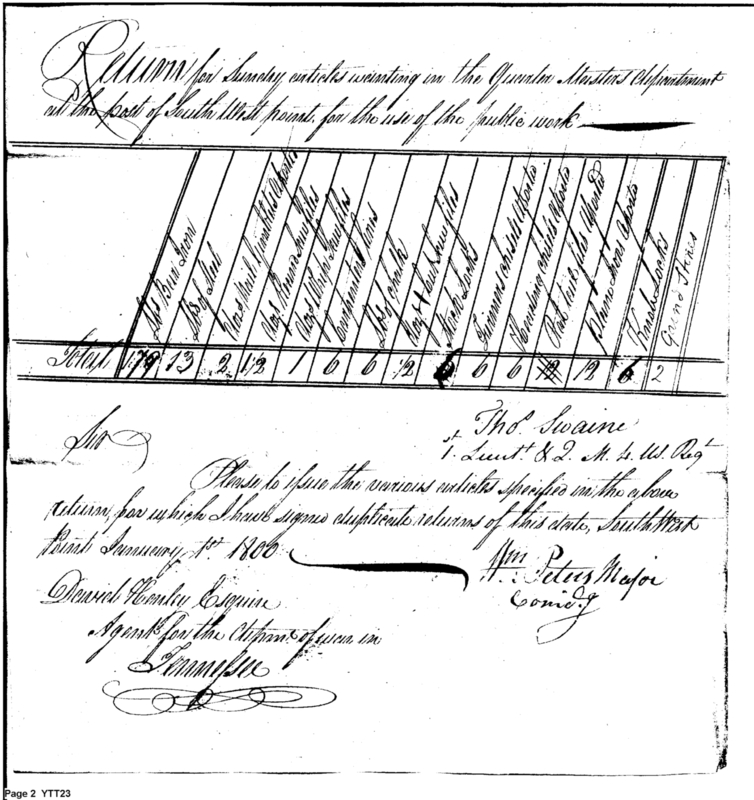 Return for Sundry articles wanting in the Quarter Masters department
at the post of South West point, for the use of the public work
lbs Barr Iron
lbs of Steel
Doz Round
Doz Whip Saw files
Carpenters
lbs of Chalk
Doz Saw files
Stock Locks
Firmers Chisels
Plane Irons
Knob Locks
Grind Stones
Total 170 13 2 1/2 1 6 6 1/2 6 6 12 12 6 2
Thos. Swaine
1st. Lieut. & Q. M. 4. US. Regt
Sir
Please to issue the various articles specified in the above
return, for which I have signed duplicate returns of this date, South West
Point January 1st 1800
Wm. Peters Major
Comdg
David Henley Esquire
Agent for the depmt of war in
Tennessee
Page 2 YTT23